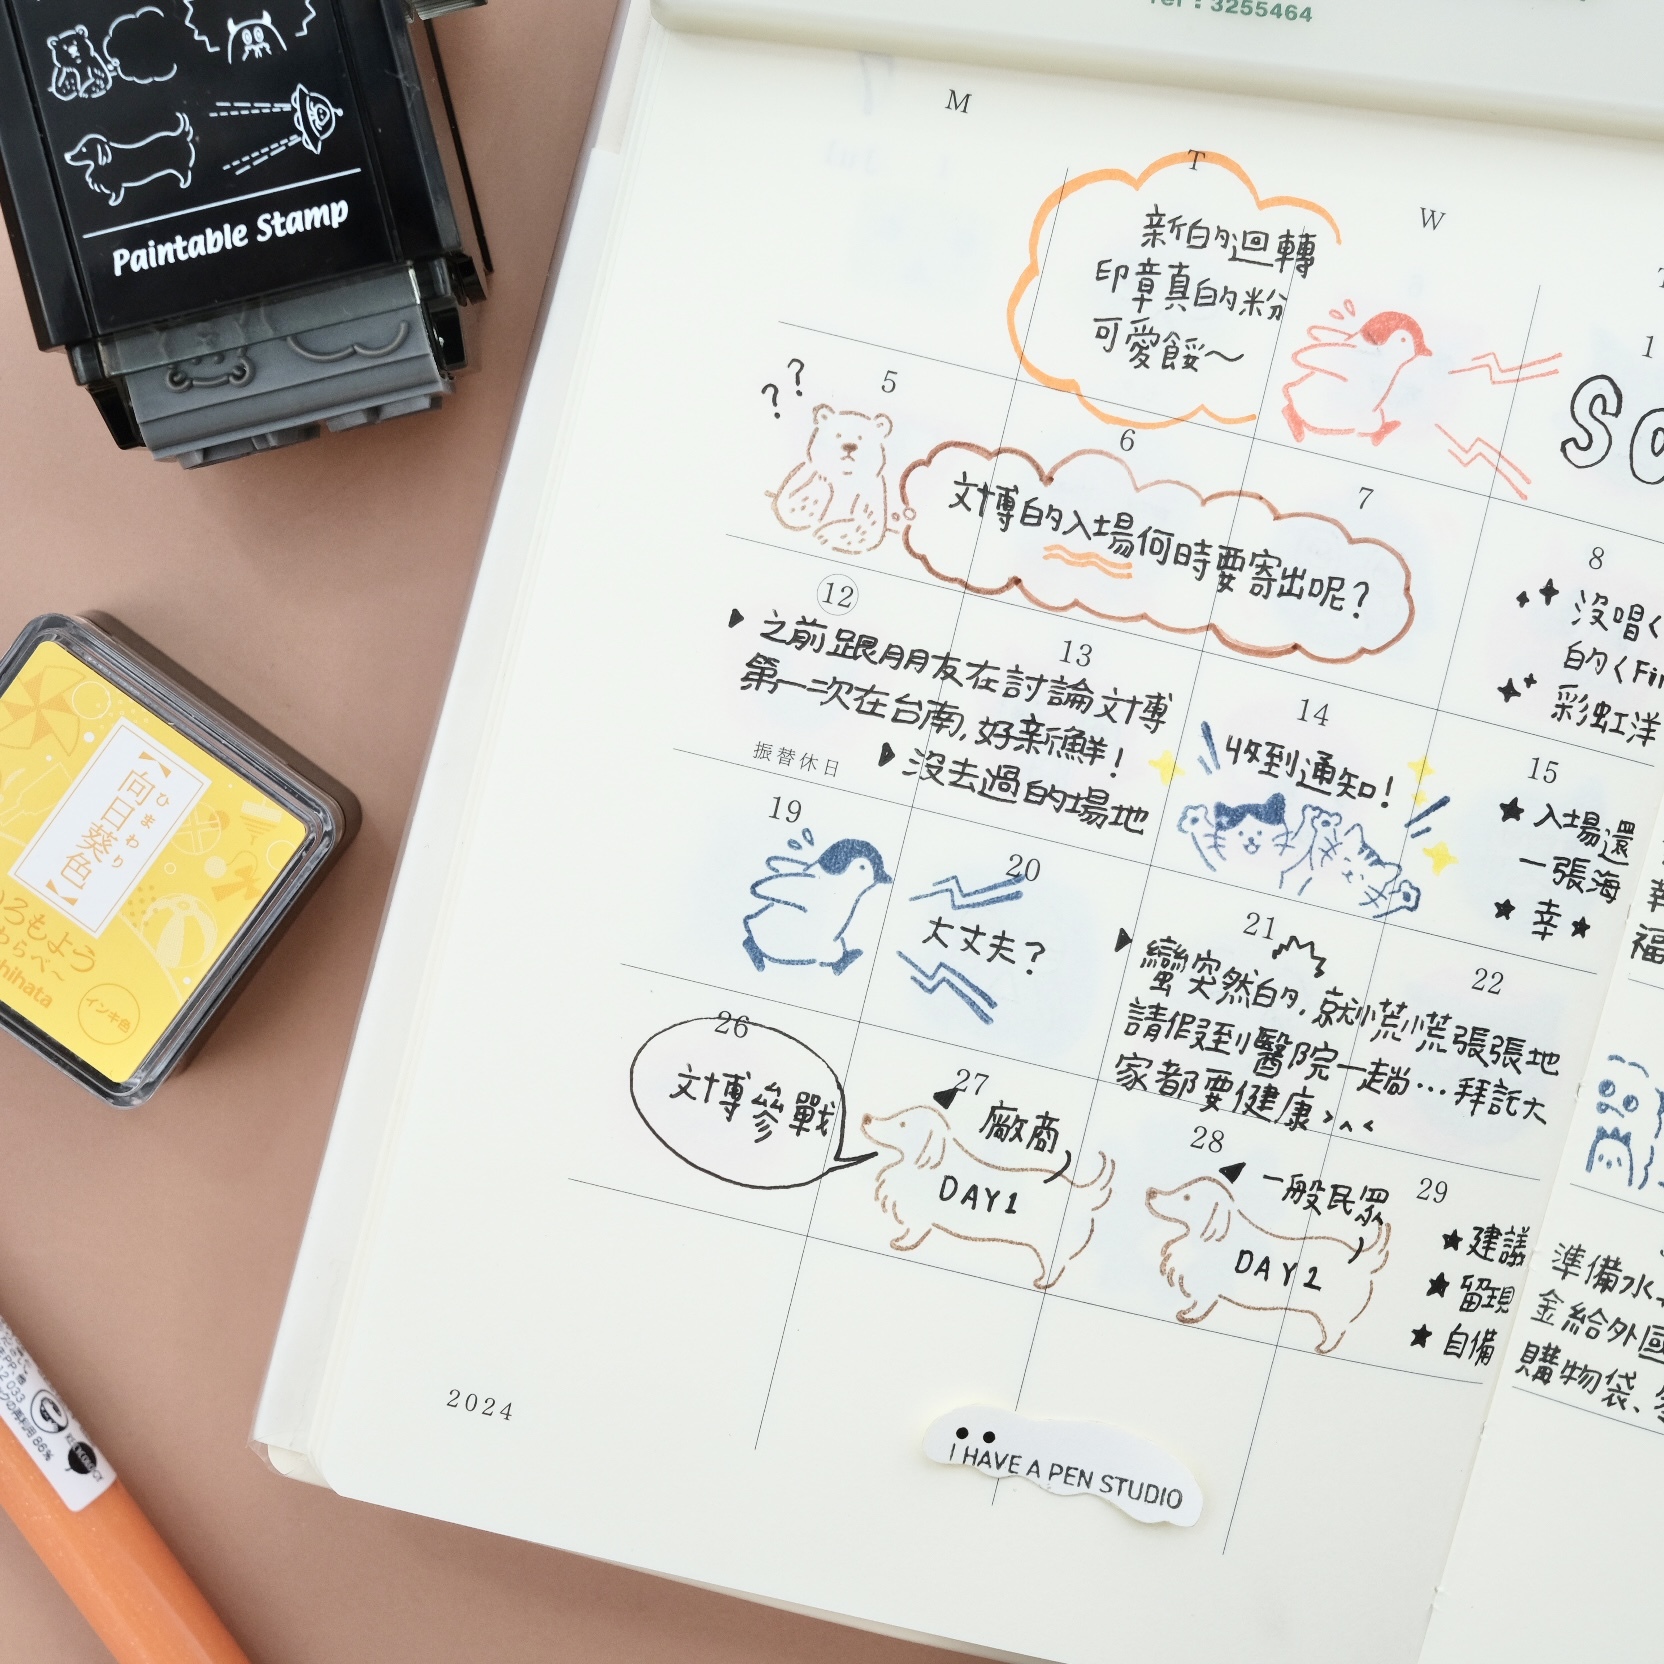 Tel : 3255464
Paintable Stamp
M
T
W
新的迴轉
印章真的粉
可愛餒～
1
SO
5
??
6
7
文博的入場何時要寄出呢?
8
沒唱く
的くFin
彩虹洋
12
13
之前跟朋友在討論文博
第一次在台南,好新鮮!
沒去過的場地
振替休日
14
收到通知!
15
入場還
一張海
幸
福
19
20
大丈夫?
21
22
蠻突然的,就慌慌張張地
請假到醫院一趟…拜託大
家都要健康>^<
26
文博參戰
27
廠商
DAY1
28
一般民眾
DAY1
29
建議
留現
自備
準備水
金給外國
購物袋、
2024
I HAVE A PEN STUDIO
【向日葵色】
ひまわり
いろもよう
わらべ
hihata
インキ色